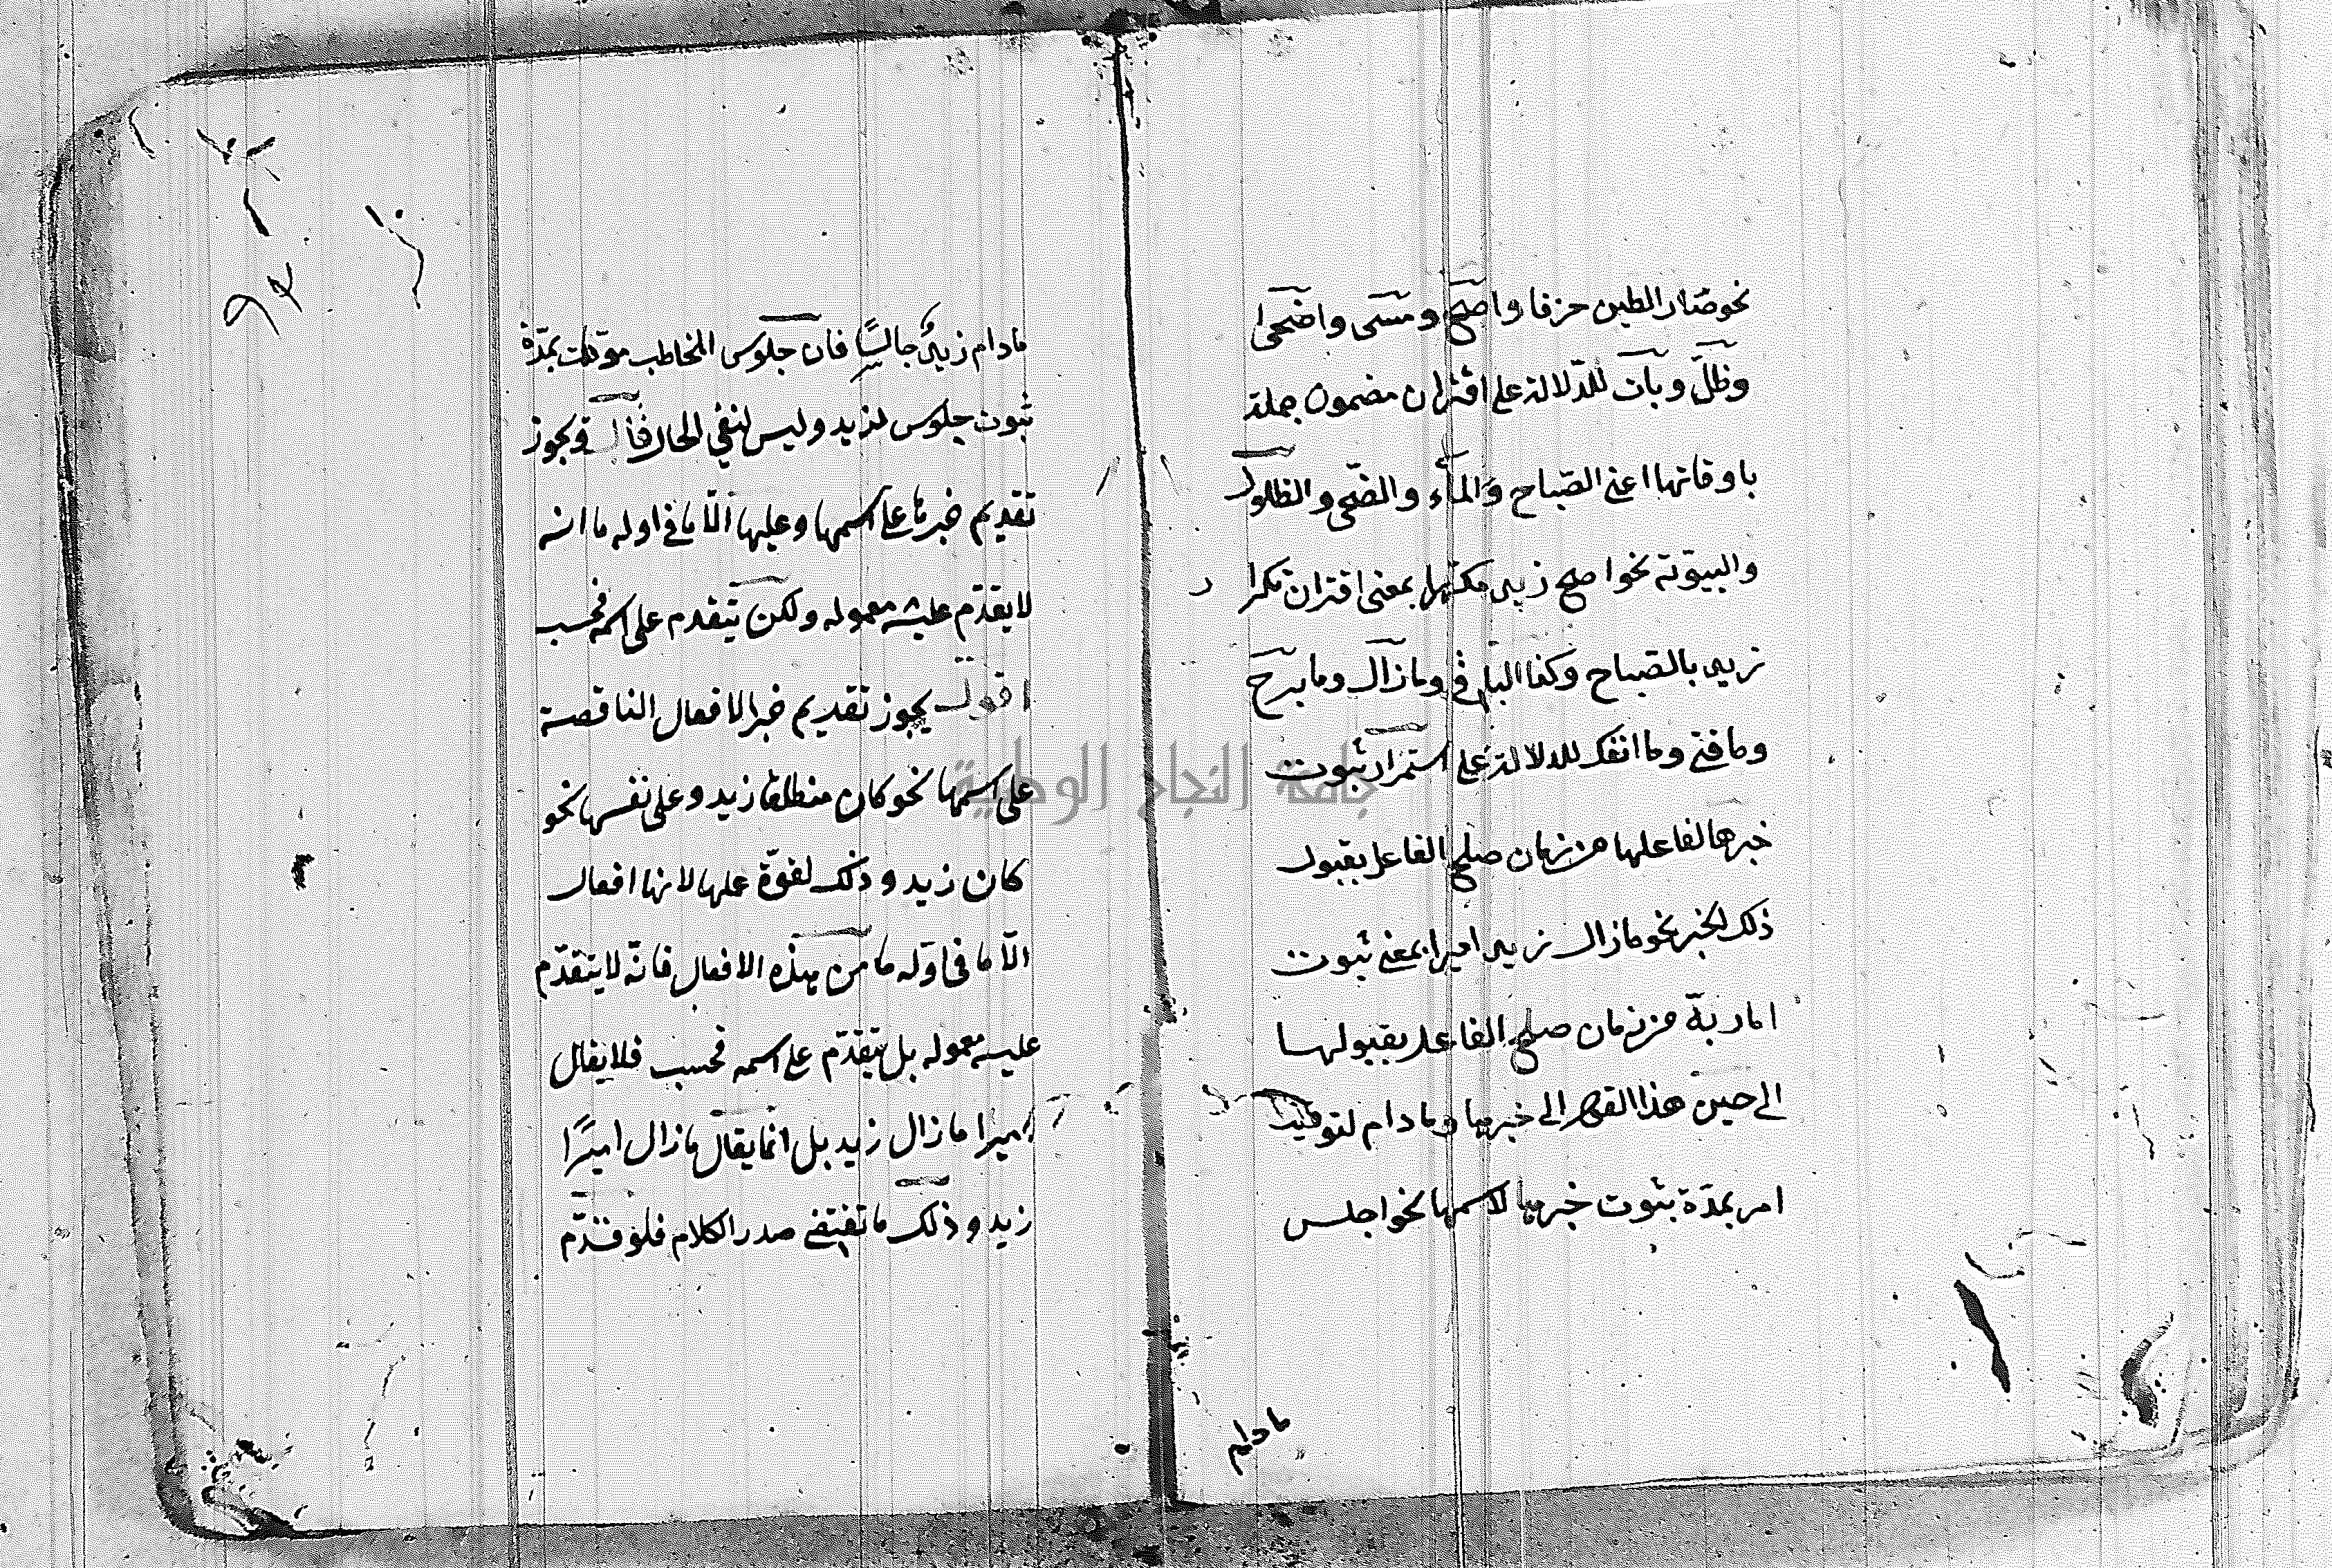 نحو صار الطين خزفا واصبح ومسى واضحى
وظل وبات للدلالة على اقتران مضمون جملة
باوقاتها اعنى الصباح والمساء والضحى والظلول
والبيتوتة نحو اصبح زيد مكرما بمعنى اقتران
زيد بالصباح وكذا البواقى وما زال وما برح
وما فتئ وما انفك للدلالة على استمرار ثبوت
خبرها لفاعلها من زمان صلح الفاعل بقبول
ذلك الخبر نحو ما زال زيد اميرا بمعنى ثبوت
امارته من زمان صلح الفاعل بقبولها
الى حين هذا الى خبرها وما دام لتوقيت
امر بمدة بثوت خبرها لاسمها نحو اجلس
مادام
مادام زيد جالسًا فان جلوس المخاطب موقت بمدّة
ثبوت جلوس لزيد وليس لنفى الحال قال ويجوز
تقديم خبرها على اسمها وعليها الّا ما فى اوله ما انه
لا يقدّم عليه معموله ولكن يتقدم على اسمه فحسب
اقول يجوز تقديم خبر الافعال الناقصة
على اسمها نحو كان منطلقا زيد وعلى نفسها نحو
كان زيد وذلك لقوّة عملها لانها افعال
الّا ما فى اوّله ما من هذه الافعال فانّه لا يتقدّم
عليه معموله بل يتقدّم على اسمه فحسب فلا يقال
اميرا ما زال زيد بل انما يقال ما زال اميرًا
زيد وذلك ما تقتضى صدر الكلام فلو قدّم
جامعة النجاح الوطنية